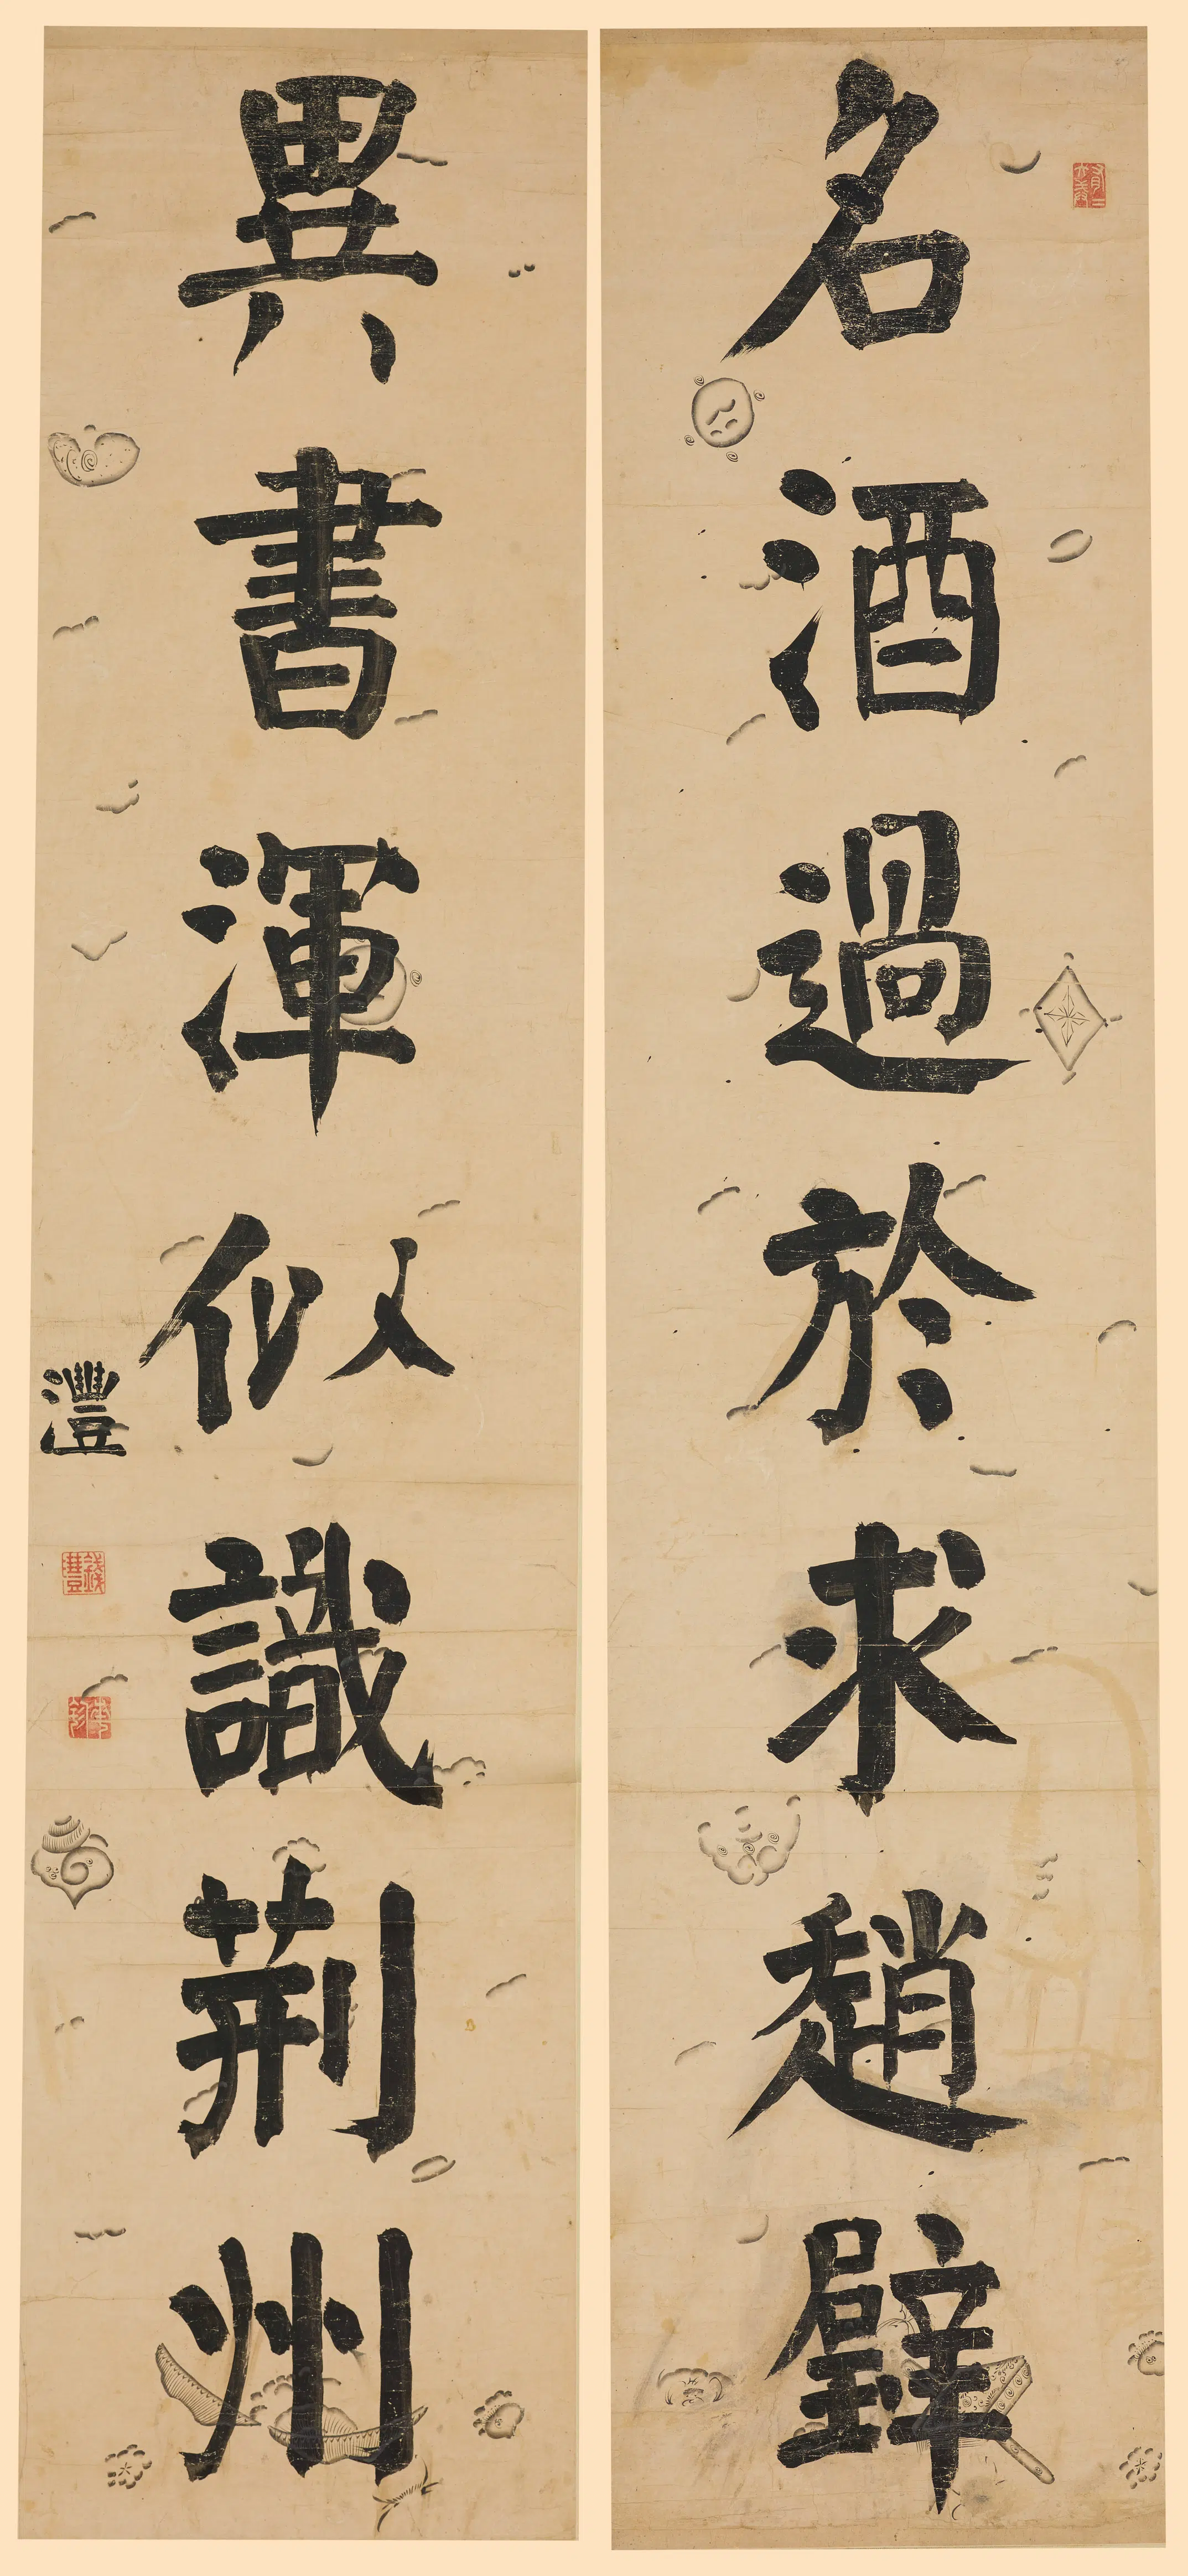 名酒過於求趙璧
異書渾似識荊州
灃
錢灃